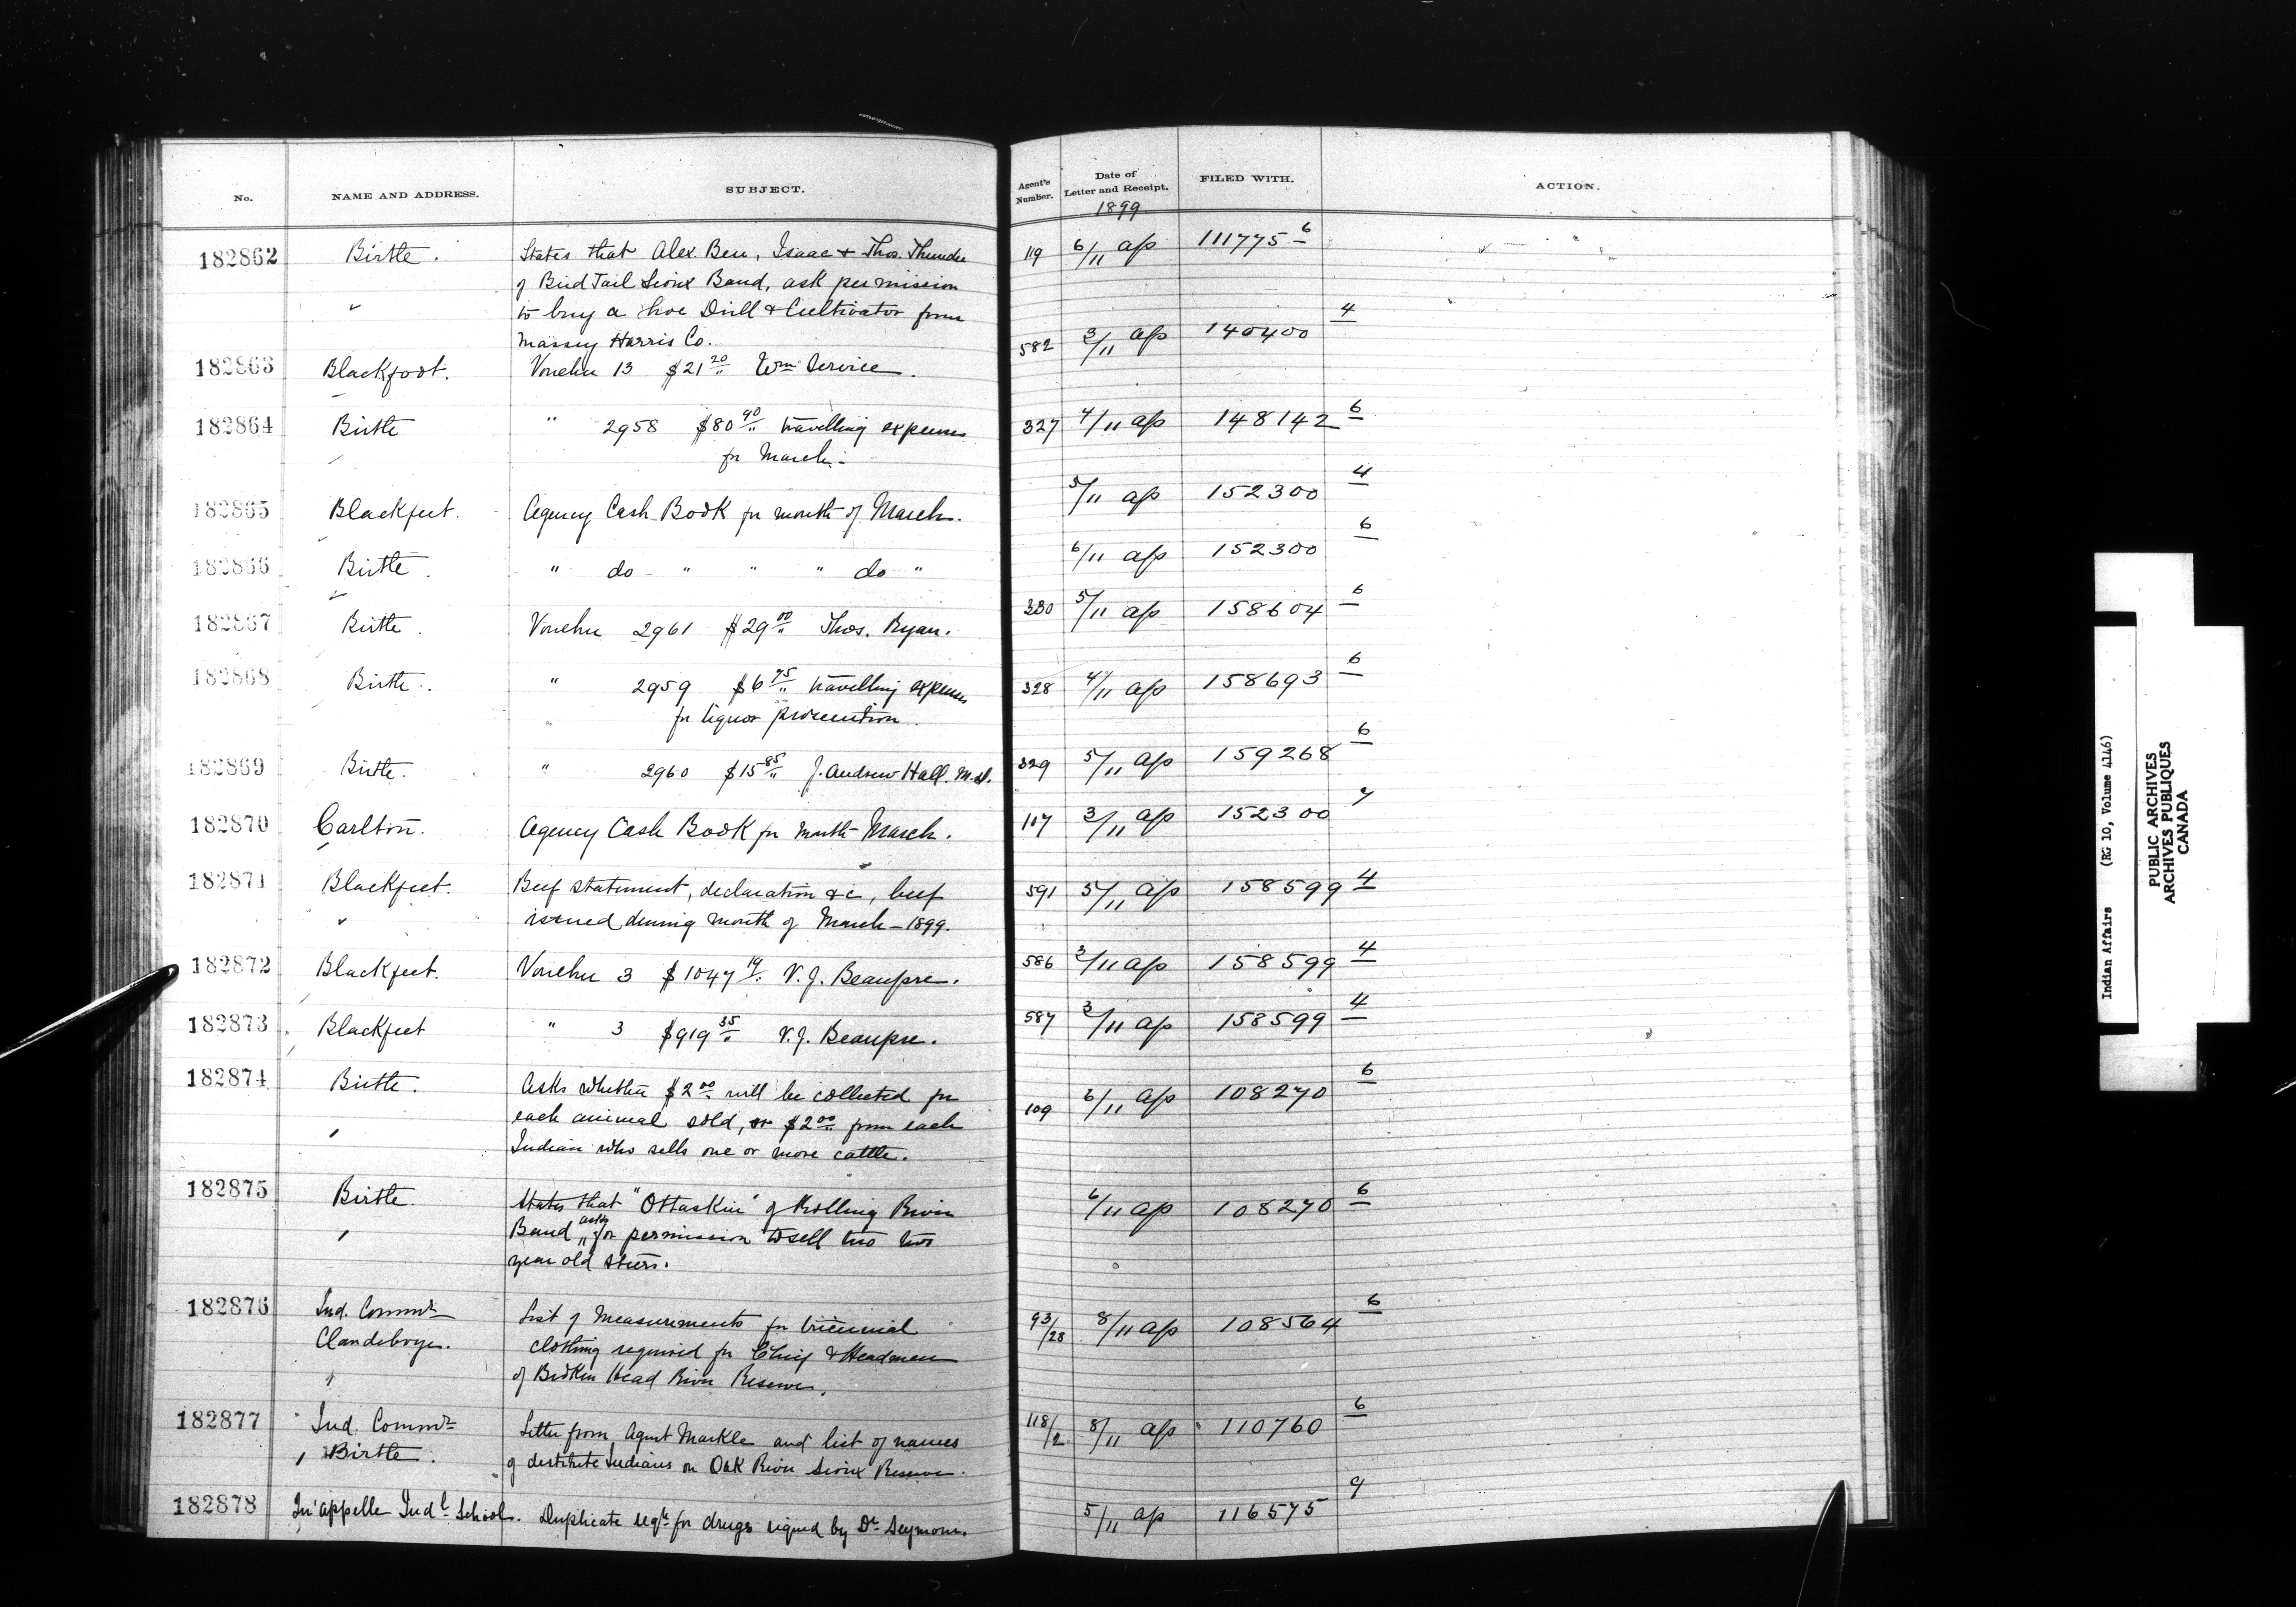 No. NAME AND ADDRESS. SUBJECT. Agent's Number. Date of Letter and Receipt. FILED WITH. ACTION.
1899
182862 Birtle. States that Alex. Ben, Isaac & Thos. Thunder 119 6/11 ap 111775-6
of Bird Tail Sioux Band, ask permission
" to buy a hoe Drill & Cultivator from
Massey Harris Co.
182863 Blackfoot. Voucher 13 $21 20/" Wm Service. 582 3/11 ap 140400 4
182864 Birtle " 2958 $80 90/" travelling expenses 327 4/11 ap 148142 6
for March.
182865 Blackfeet. Agency Cash Book for month of March. 5/11 ap 152300 4
182866 Birtle. " do " " " do " 6/11 ap 152300 6
182867 Birtle. Voucher 2961 $29 00/" Thos. Ryan. 330 5/11 ap 158604 6
182868 Birtle. " 2959 $6 75/" travelling expenses 328 4/11 ap 158693 6
for liquor prosecution.
182869 Birtle. " 2960 $15 85/" J. Andrew Hall. M.D. 329 5/11 ap 159268 6
182870 Carlton. Agency Cash Book for month March. 117 3/11 ap 152300 7
182871 Blackfeet. Beef statement, declaration &c, beef 591 5/11 ap 158599 4
issued during month of March - 1899.
182872 Blackfeet. Voucher 3 $1047 19/" V. J. Beaupre. 586 3/11 ap 158599 4
182873 Blackfeet " 3 $919 35/" V. J. Beaupre. 587 3/11 ap 158599 4
182874 Birtle. Asks whether $2 00/" will be collected for 109 6/11 ap 108270 6
each animal sold, or $2 00/" from each
Indian who sells one or more cattle.
182875 Birtle. States that "Ottaskin" of Rolling River 6/11 ap 108270 6
Band asks for permission to sell two two
year old steers.
182876 Ind. Commr List of Measurements for triennial 93/28 8/11 ap 108564 6
Clandeboye. clothing required for Chief & Headmen
of Broken Head River Reserve.
182877 Ind. Commr Letter from Agent Markle and list of names 118/2 8/11 ap 110760 6
Birtle. of destitute Indians on Oak River Sioux Reserve.
182878 Qu'appelle Indl School. Duplicate reqn for drugs signed by Dr Seymour. 5/11 ap 116575 9
Indian Affairs (RG 10, Volume 4146)
PUBLIC ARCHIVES
ARCHIVES PUBLIQUES
CANADA